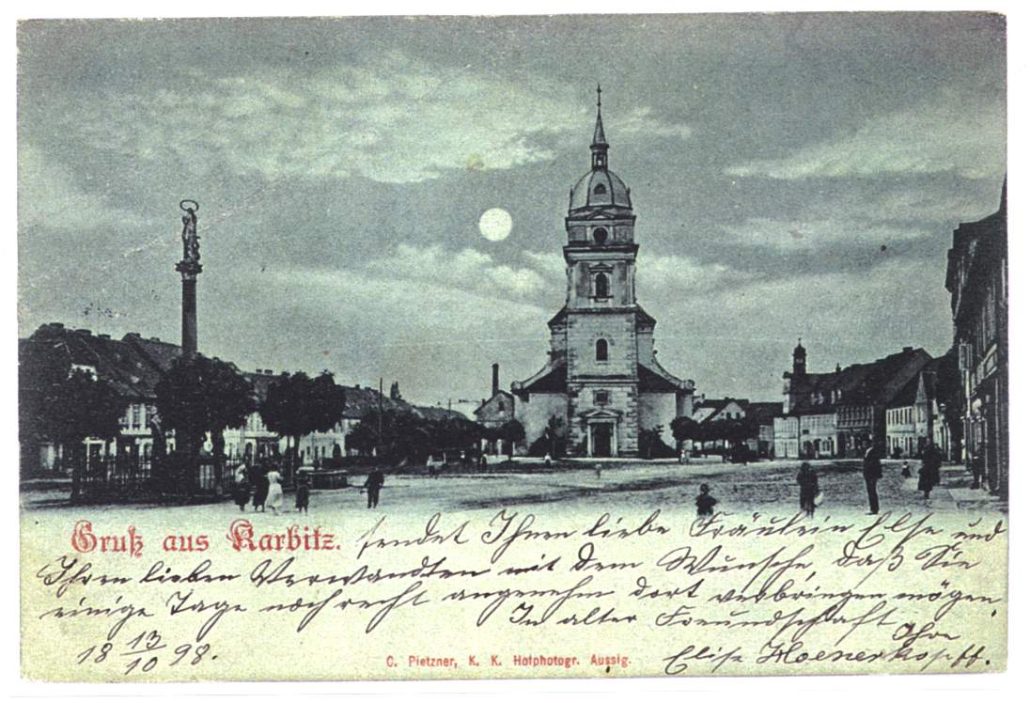 Gruß aus Karbitz. sendet Ihnen liebe Fräulein Else und
Ihren lieben Verwandten mit dem Wunsche, daß Sie
einige Tage noch recht angenehm dort verbringen mögen.
In alter Freundschaft
Ihre
18 13/10 98.
C. Pietzner, K. K. Hofphotogr. Aussig.
Elise